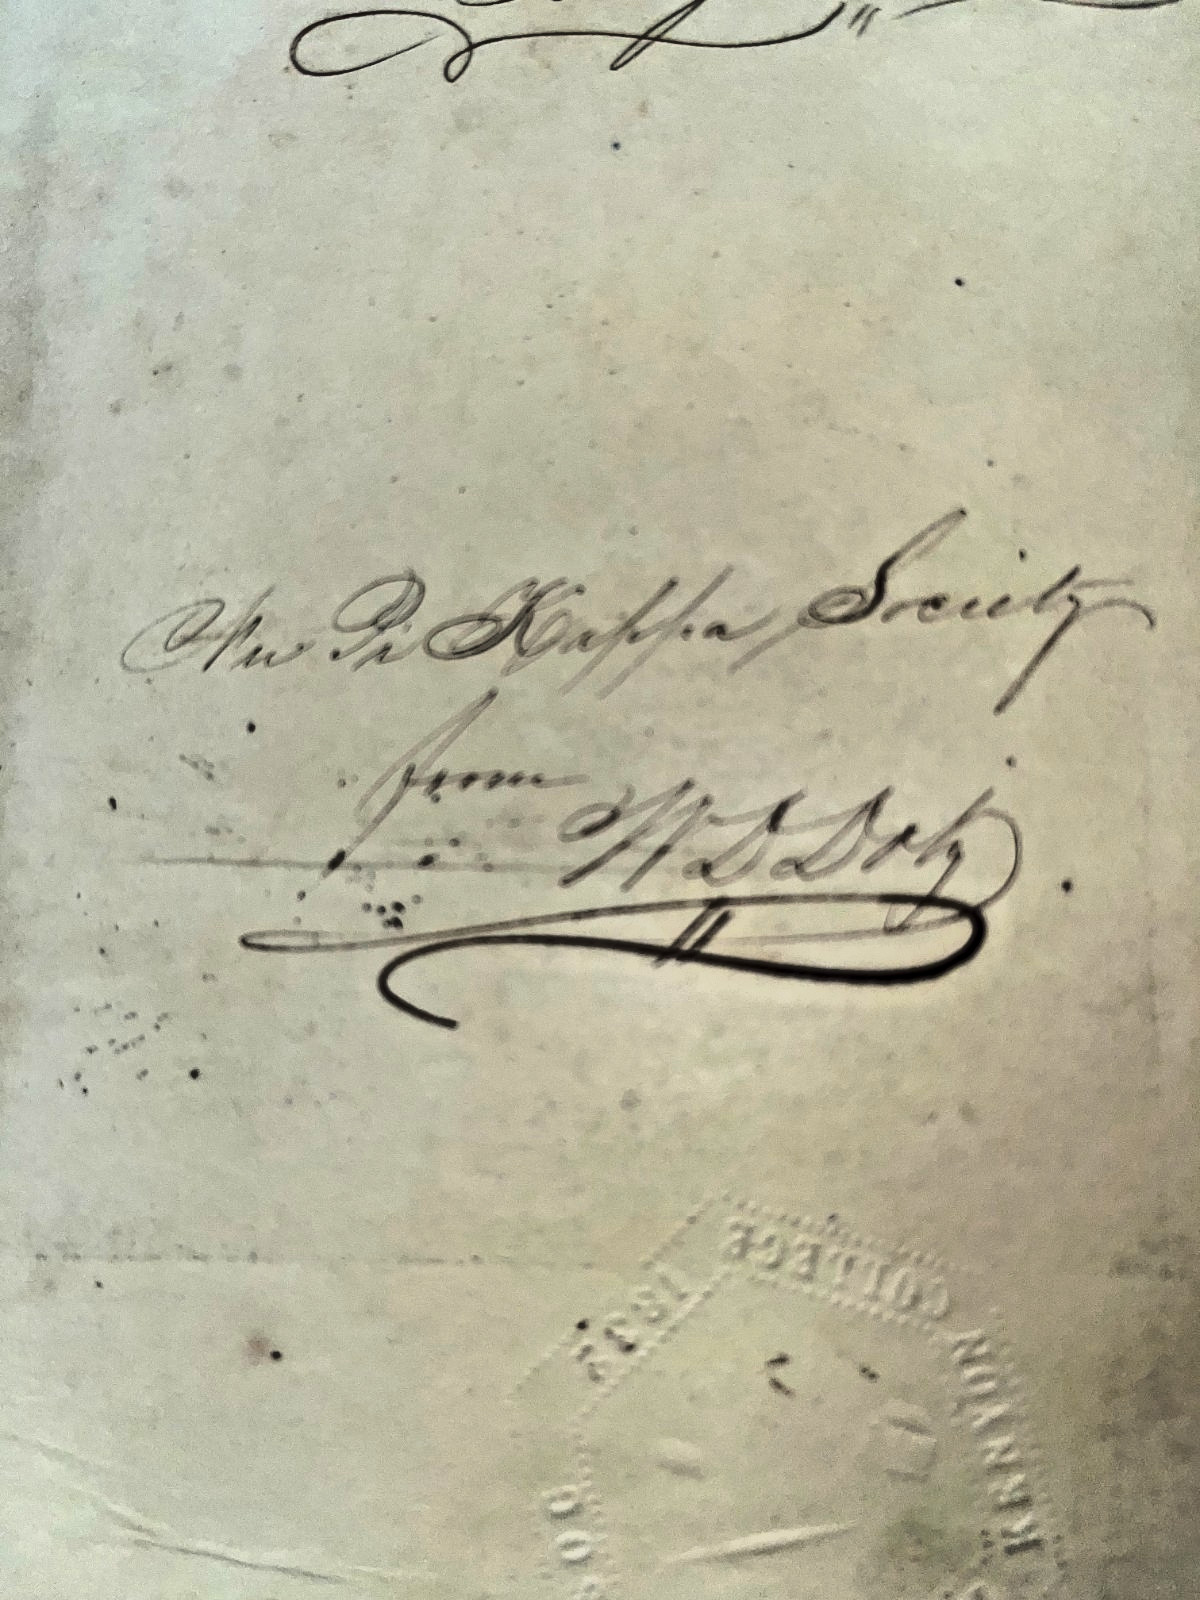 Nu Pi Kappa Society
from
W D Doty
KENYON COLLEGE 1832